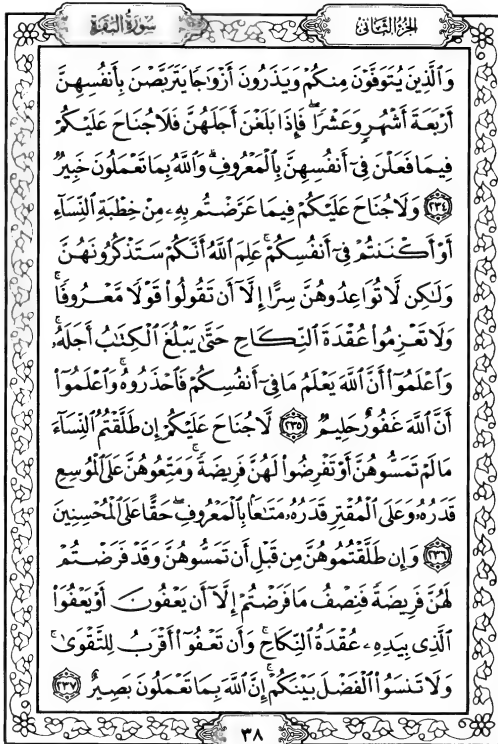 الجزء الثاني
سورة البقرة
وَالَّذِينَ يُتَوَفَّوْنَ مِنكُمْ وَيَذَرُونَ أَزْوَاجًا يَتَرَبَّصْنَ بِأَنفُسِهِنَّ
أَرْبَعَةَ أَشْهُرٍ وَعَشْرًا ۖ فَإِذَا بَلَغْنَ أَجَلَهُنَّ فَلَا جُنَاحَ عَلَيْكُمْ
فِيمَا فَعَلْنَ فِىٓ أَنفُسِهِنَّ بِالْمَعْرُوفِ ۗ وَاللَّهُ بِمَا تَعْمَلُونَ خَبِيرٌ
٢٣٤ وَلَا جُنَاحَ عَلَيْكُمْ فِيمَا عَرَّضْتُم بِهِۦ مِنْ خِطْبَةِ النِّسَآءِ
أَوْ أَكْنَنتُمْ فِىٓ أَنفُسِكُمْ ۚ عَلِمَ اللَّهُ أَنَّكُمْ سَتَذْكُرُونَهُنَّ
وَلَٰكِن لَّا تُوَاعِدُوهُنَّ سِرًّا إِلَّآ أَن تَقُولُوا۟ قَوْلًا مَّعْرُوفًا ۚ
وَلَا تَعْزِمُوا۟ عُقْدَةَ النِّكَاحِ حَتَّىٰ يَبْلُغَ الْكِتَٰبُ أَجَلَهُۥ ۚ
وَاعْلَمُوٓا۟ أَنَّ اللَّهَ يَعْلَمُ مَا فِىٓ أَنفُسِكُمْ فَاحْذَرُوهُ ۚ وَاعْلَمُوٓا۟
أَنَّ اللَّهَ غَفُورٌ حَلِيمٌ ٢٣٥ لَّا جُنَاحَ عَلَيْكُمْ إِن طَلَّقْتُمُ النِّسَآءَ
مَا لَمْ تَمَسُّوهُنَّ أَوْ تَفْرِضُوا۟ لَهُنَّ فَرِيضَةً ۚ وَمَتِّعُوهُنَّ عَلَى الْمُوسِعِ
قَدَرُهُۥ وَعَلَى الْمُقْتِرِ قَدَرُهُۥ مَتَٰعًۢا بِالْمَعْرُوفِ ۖ حَقًّا عَلَى الْمُحْسِنِينَ
٢٣٦ وَإِن طَلَّقْتُمُوهُنَّ مِن قَبْلِ أَن تَمَسُّوهُنَّ وَقَدْ فَرَضْتُمْ
لَهُنَّ فَرِيضَةً فَنِصْفُ مَا فَرَضْتُمْ إِلَّآ أَن يَعْفُونَ أَوْ يَعْفُوَا۟
الَّذِى بِيَدِهِۦ عُقْدَةُ النِّكَاحِ ۚ وَأَن تَعْفُوٓا۟ أَقْرَبُ لِلتَّقْوَىٰ ۚ
وَلَا تَنسَوُا۟ الْفَضْلَ بَيْنَكُمْ ۚ إِنَّ اللَّهَ بِمَا تَعْمَلُونَ بَصِيرٌ ٢٣٧
٣٨